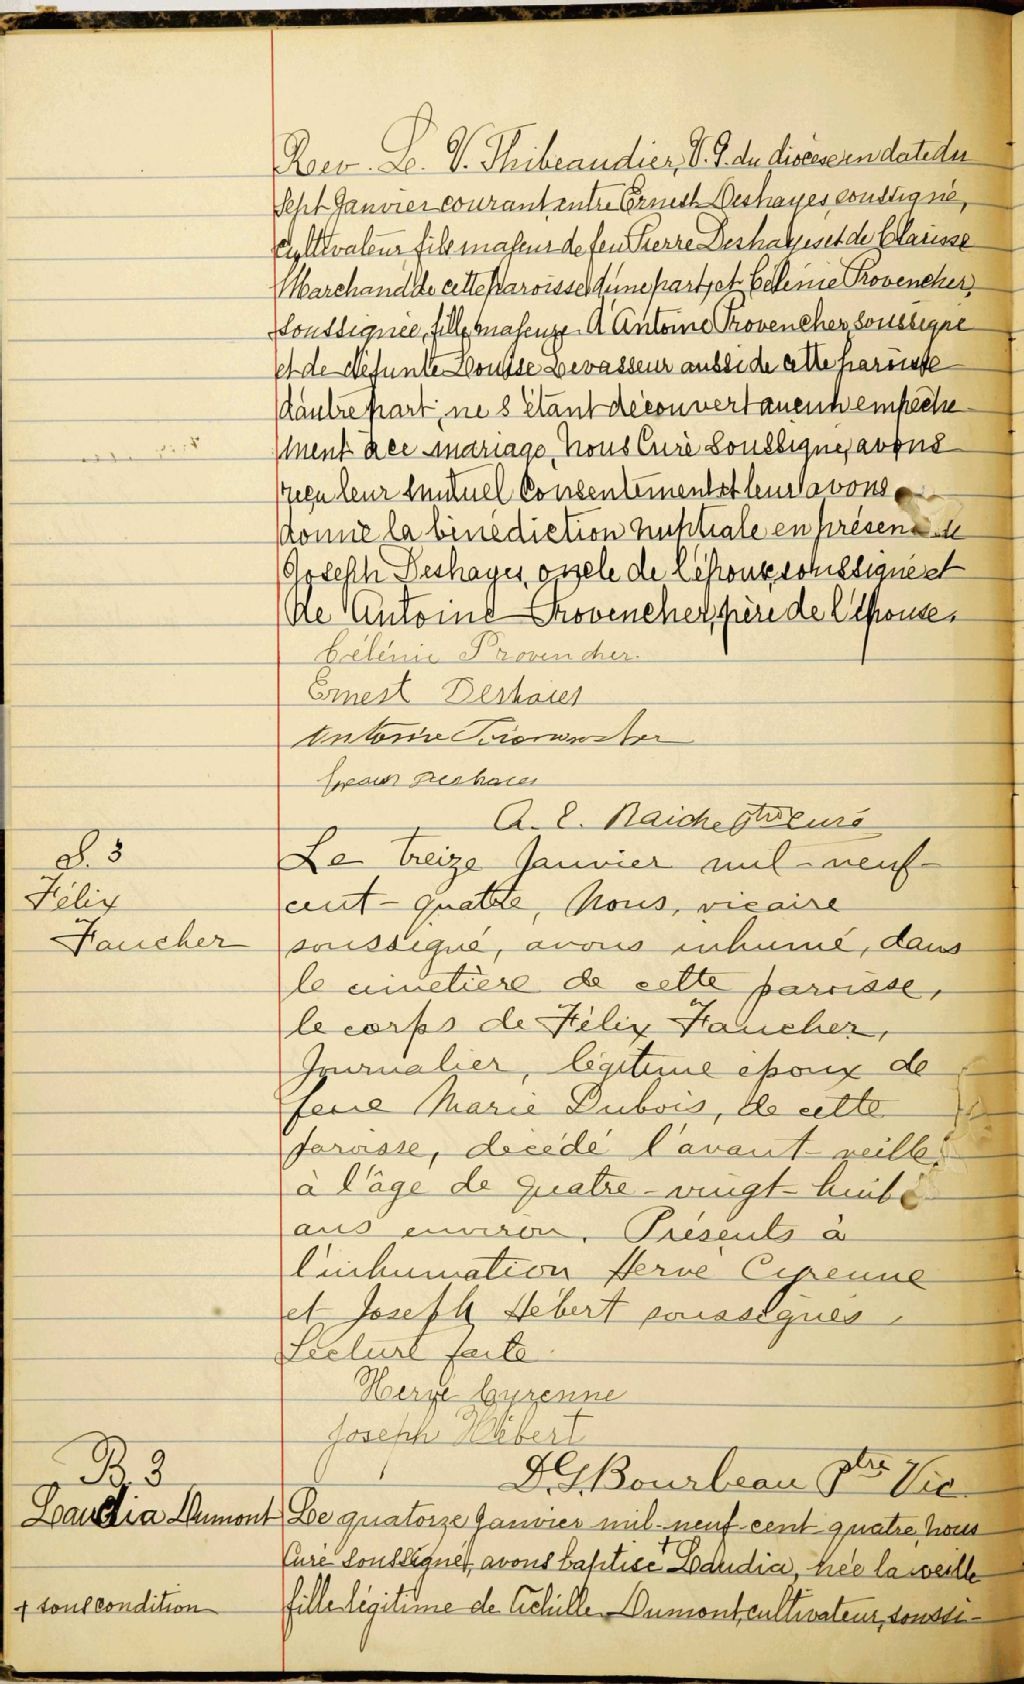 Rev. L. V. Thibeaudier, V. G. du diocèse en date du
sept Janvier courant, entre Ernest Deshayes, soussigné,
cultivateur fils majeur de feu Pierre Deshayes et de Clarisse
Marchand de cette paroisse d'une part, et Célénie Provencher,
soussignée, fille majeure d'Antoine Provencher, soussigné
et de défunte Louise Levasseur aussi de cette paroisse
d'autre part; ne s'étant découvert aucun empêche-
ment à ce mariage, Nous Curé soussigné, avons
reçu leur mutuel consentement et leur avons
donné la bénédiction nuptiale en présence de
Joseph Deshayes, oncle de l'époux, soussigné et
de Antoine Provencher, père de l'épouse.
Célénie Provencher.
Ernest Deshaies
Antoine Provencher
Deshaies
A. E. Raiche ptre curé
S. 3
Félix
Faucher
Le treize Janvier mil-neuf-
cent-quatre, Nous, vicaire
soussigné, avons inhumé, dans
le cimetière de cette paroisse,
le corps de Félix Faucher,
Journalier, légitime époux de
feue Marie Dubois, de cette
paroisse, décédé l'avant-veille
à l'âge de quatre-vingt-huit
ans environ. Présents à
l'inhumation Hervé Cyrenne
et Joseph Hébert soussignés,
Lecture faite.
Hervé Cyrenne
Joseph Hébert
D. G. Bourbeau Ptre Vic.
B. 3
Laudia Dumont
+ sous condition
Le quatorze Janvier mil-neuf-cent quatre, Nous
Curé soussigné, avons baptisé + Laudia, née la veille
fille légitime de Achille Dumont, cultivateur, soussi-